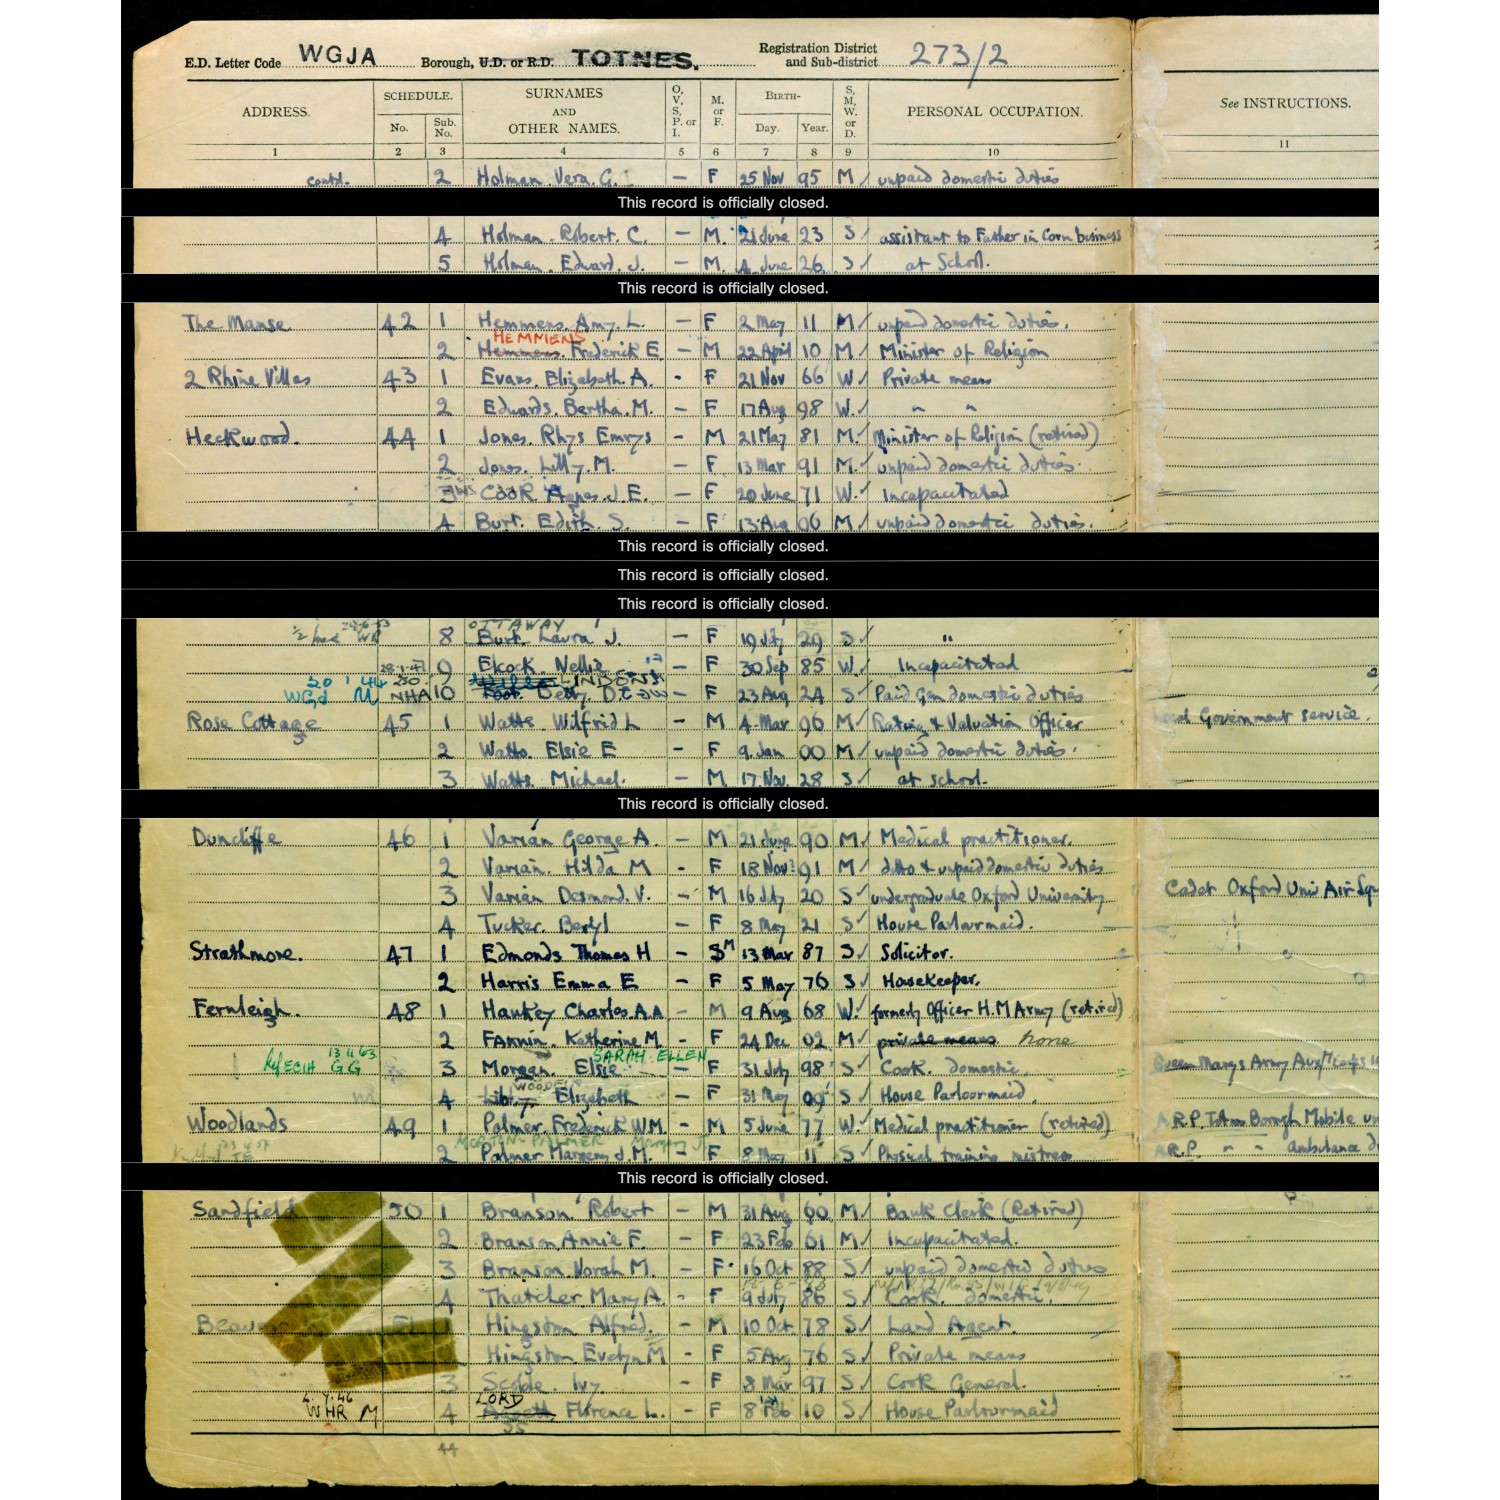 E.D. Letter Code WGJA Borough, U.D. or R.D. TOTNES. Registration District and Sub-district 273/2
ADDRESS. SCHEDULE. No. Sub. No. SURNAMES AND OTHER NAMES. O, V, S, P. or I. M. or F. BIRTH- Day. Year. S, M, W. or D. PERSONAL OCCUPATION. See INSTRUCTIONS.
1 2 3 4 5 6 7 8 9 10 11
contd. 2 Holman. Vera. G. – F 25 Nov 95 M unpaid domestic duties
This record is officially closed.
4 Holman. Robert. C. – M. 21 June 23 S assistant to Father in Corn business
5 Holman. Edward. J. – M. 4 June 26 S at School.
This record is officially closed.
The Manse 42 1 Hemmens. Amy. L. – F 2 May 11 M unpaid domestic duties.
HEMMENS
2 Hemmens. Frederick E. – M 22 April 10 M Minister of Religion
2 Rhine Villas 43 1 Evans. Elizabeth. A. - F 21 Nov 66 W Private means
2 Edwards. Bertha. M. – F 17 Aug 98 W. " "
Heckwood. 44 1 Jones. Rhys Emrys – M 21 May 81 M. Minister of Religion (retired)
2 Jones. Lilly. M. – F 13 Mar 91 M. unpaid domestic duties.
3 Cook Agnes. J. E. – F 20 June 71 W. Incapacitated
4 Burt. Edith. S. – F 13 Aug 06 M unpaid domestic duties.
This record is officially closed.
This record is officially closed.
This record is officially closed.
OTTAWAY
8 Burt. Laura J. – F 19 Jly 29 S "
9 Elcock. Nellie – F 30 Sep 85 W. Incapacitated
20 1 44 LINDON
WGd M NHA 10 Foot. Betty. D. – F 23 Aug 24 S Paid Gen domestic duties
Rose Cottage 45 1 Watts. Wilfrid L – M 4 Mar 96 M Rating & Valuation Officer Local Government service.
2 Watts. Elsie E - F 9. Jan 00 M unpaid domestic duties.
3 Watts. Michael. – M 17. Nov. 28 S at school.
This record is officially closed.
Duncliffe 46 1 Varian George A. – M 21 June 90 M Medical practitioner.
2 Varian. Hilda M - F 18 Nov 91 M ditto & unpaid domestic duties
3 Varian Desmond. V. – M 16 Jly 20 S undergraduate Oxford University Cadet Oxford Univ Air Sqn
4 Tucker. Beryl – F 8 May 21 S House Parlourmaid.
Strathmore. 47 1 Edmonds Thomas H – M 13 Mar 87 S Solicitor.
2 Harris Emma E – F 5 May 76 S Housekeeper.
Fernleigh. 48 1 Hankey Charles. A.A – M 9 Aug 68 W. formerly Officer H.M Army (retired)
2 Fannin. Katherine M. – F 24 Dec 02 M private means none
13 11 63 SARAH ELLEN
ECIH GG 3 Morgan. Elsie – F 31 July 98 S Cook. domestic. Queen Marys Army Aux/Corps
WOODEIN
4 Elizabeth – F 31 May 09 S House Parlourmaid.
Woodlands 49 1 Palmer. Frederick W.M. – M 5 June 77 W. Medical practitioner (retired) A.R.P. Totnes Borough Mobile
MORTON-PALMER
2 Palmer Margery d. M. – F 8 May 11 S Physical training mistress A.R.P. " " ambulance
This record is officially closed.
Sandfield 50 1 Branson. Robert – M 31 Aug 60 M Bank Clerk (Retired)
2 Branson Annie F. – F 23 Feb 61 M Incapacitated.
3 Branson Norah M. – F 16 Oct 88 S unpaid domestic duties
4 Thatcher Mary A. – F 9 July 86 S Cook. domestic.
Hingston Alfred. – M 10 Oct 78 S Land Agent.
Hingston Evelyn M - F 5 Aug 76 S Private means
3 Scoble. Ivy. – F 8 Mar 97 S Cook General.
4.7.46 LORD
WHR M 4 Florence L. – F 8 Feb 10 S House Parlourmaid
44